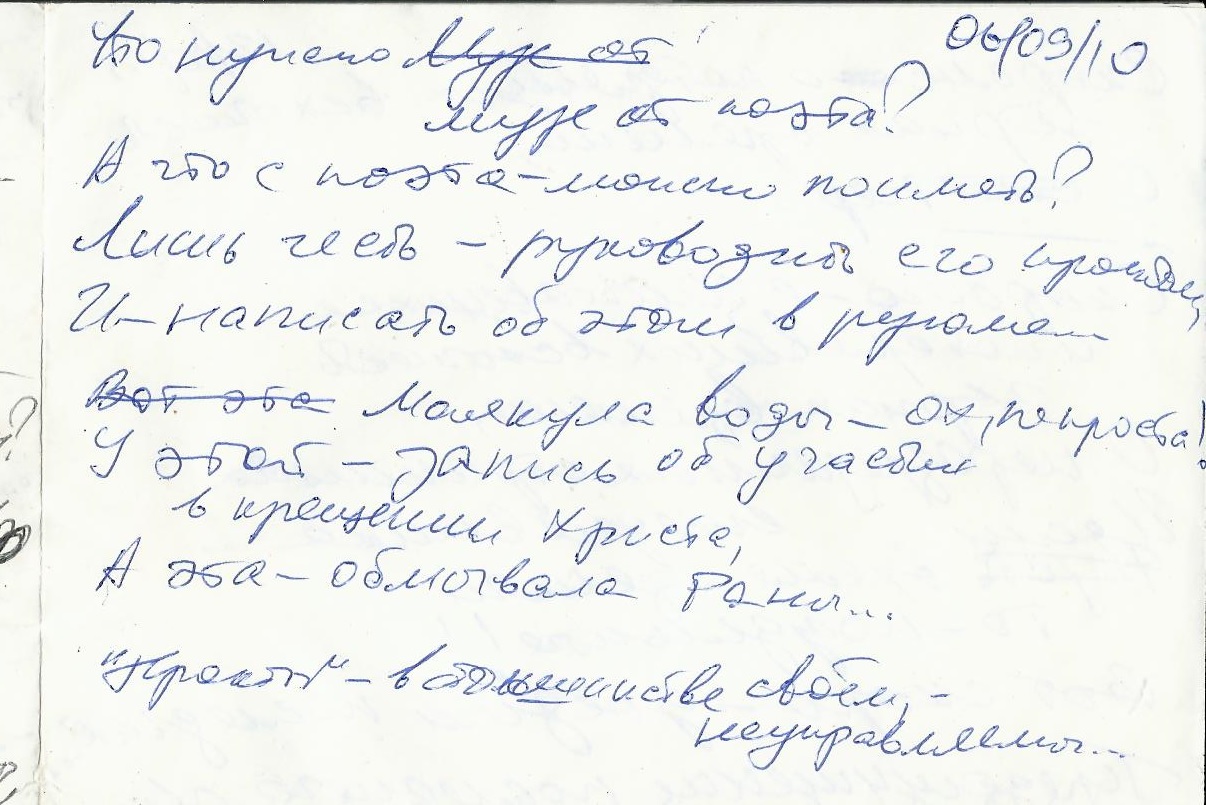 Что нужно ~~Музе от~~ 06/09/10
музе от поэта?
А что с поэта - можно поиметь?
Лишь честь - руководить его
И - написать об этом в резюме...
~~Вот эта~~ Молекула воды - ох, непроста!
У этой - запись об участии
в крещении Христа,
А эта - обмывала раны...
- в большинстве своём, -
неуправляемы...